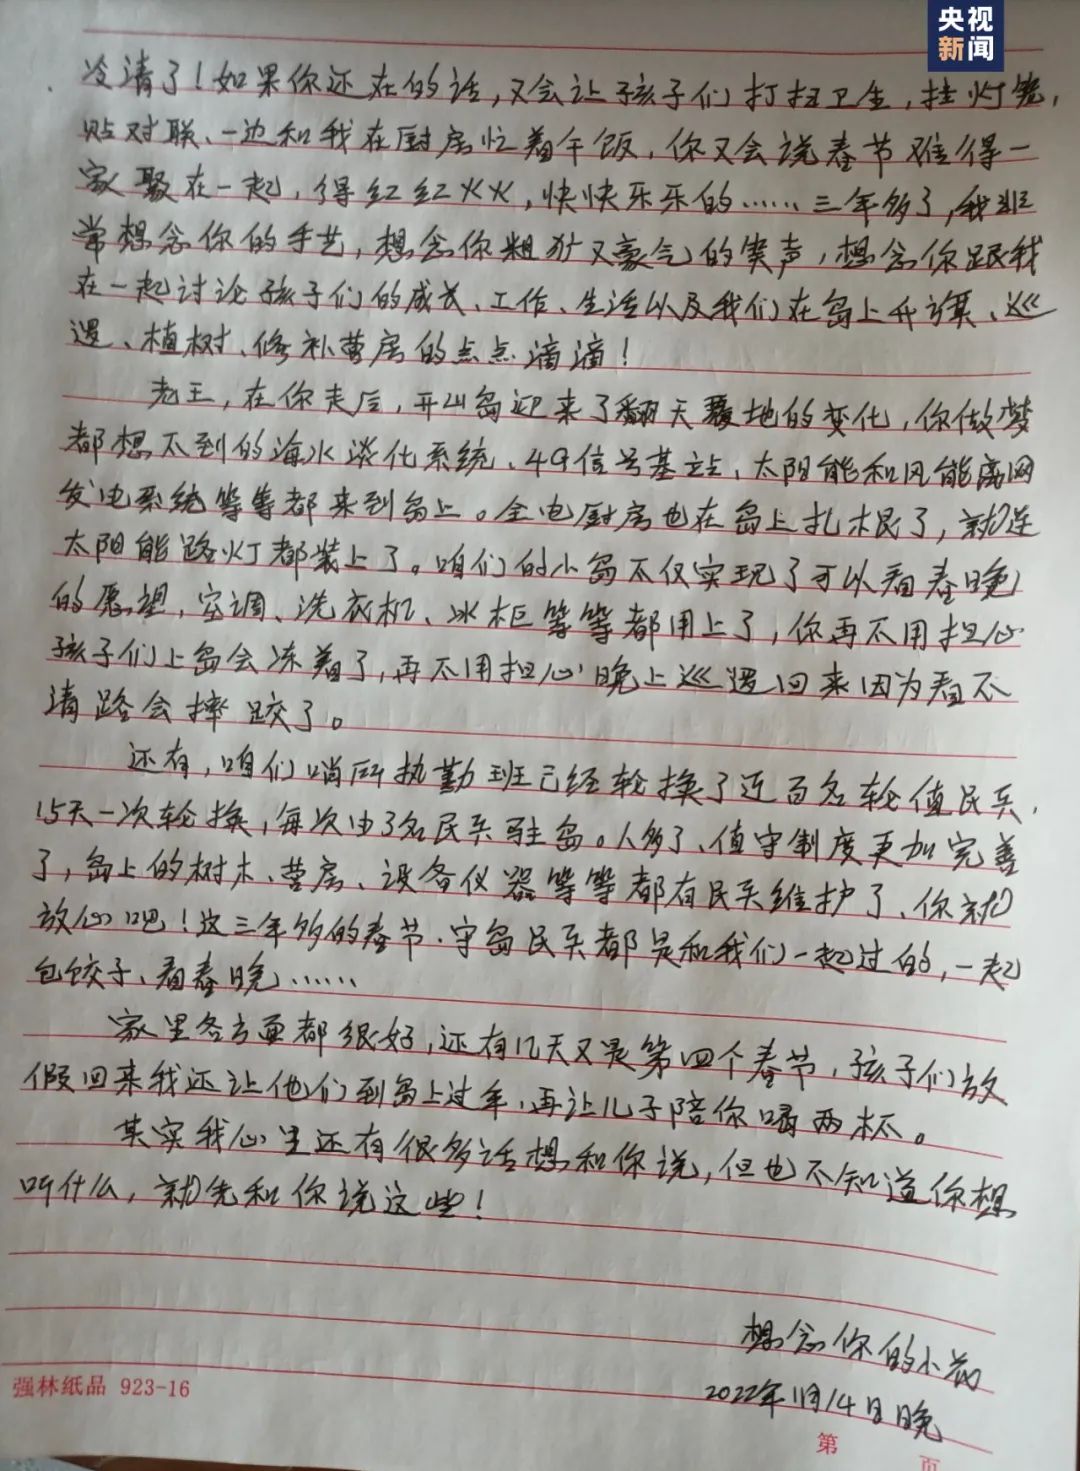 央视
新闻
冷清了！如果你还在的话，又会让孩子们打扫卫生，挂灯笼，
贴对联、一边和我在厨房忙着午饭，你又会说春节难得一
家聚在一起，得红红火火，快快乐乐的……三年多了，我非
常想念你的手艺，想念你粗犷又豪气的笑声，想念你跟我
在一起讨论孩子们的成长、工作、生活以及我们在岛上升旗、巡
逻、植树、修补营房的点点滴滴！
老王，在你走后，开山岛迎来了翻天覆地的变化，你做梦
都想不到的海水淡化系统、4G信号基站、太阳能和风能离网
发电系统等等都来到岛上。全电厨房也在岛上扎根了，就连
太阳能路灯都装上了。咱们的小岛不仅实现了可以看春晚
的愿望，空调、洗衣机、冰柜等等都用上了，你再不用担心
孩子们上岛会冻着了，再不用担心晚上巡逻回来因为看不
清路会摔跤了。
还有，咱们哨所执勤班已经轮换了近百名轮值民兵，
15天一次轮换，每次由3名民兵驻岛。人多了、值守制度更加完善
了，岛上的树木、营房、设备仪器等等都有民兵维护了、你就
放心吧！这三年多的春节、守岛民兵都是和我们一起过的，一起
包饺子、看春晚……
家里各方面都很好，还有几天又是第四个春节，孩子们放
假回来我还让他们到岛上过年，再让儿子陪你喝两杯。
其实我心里还有很多话想和你说，但也不知道你想
听什么，就先和你说这些！
想念你的小花
2022年1月14日晚
强林纸品 923-16
第 页